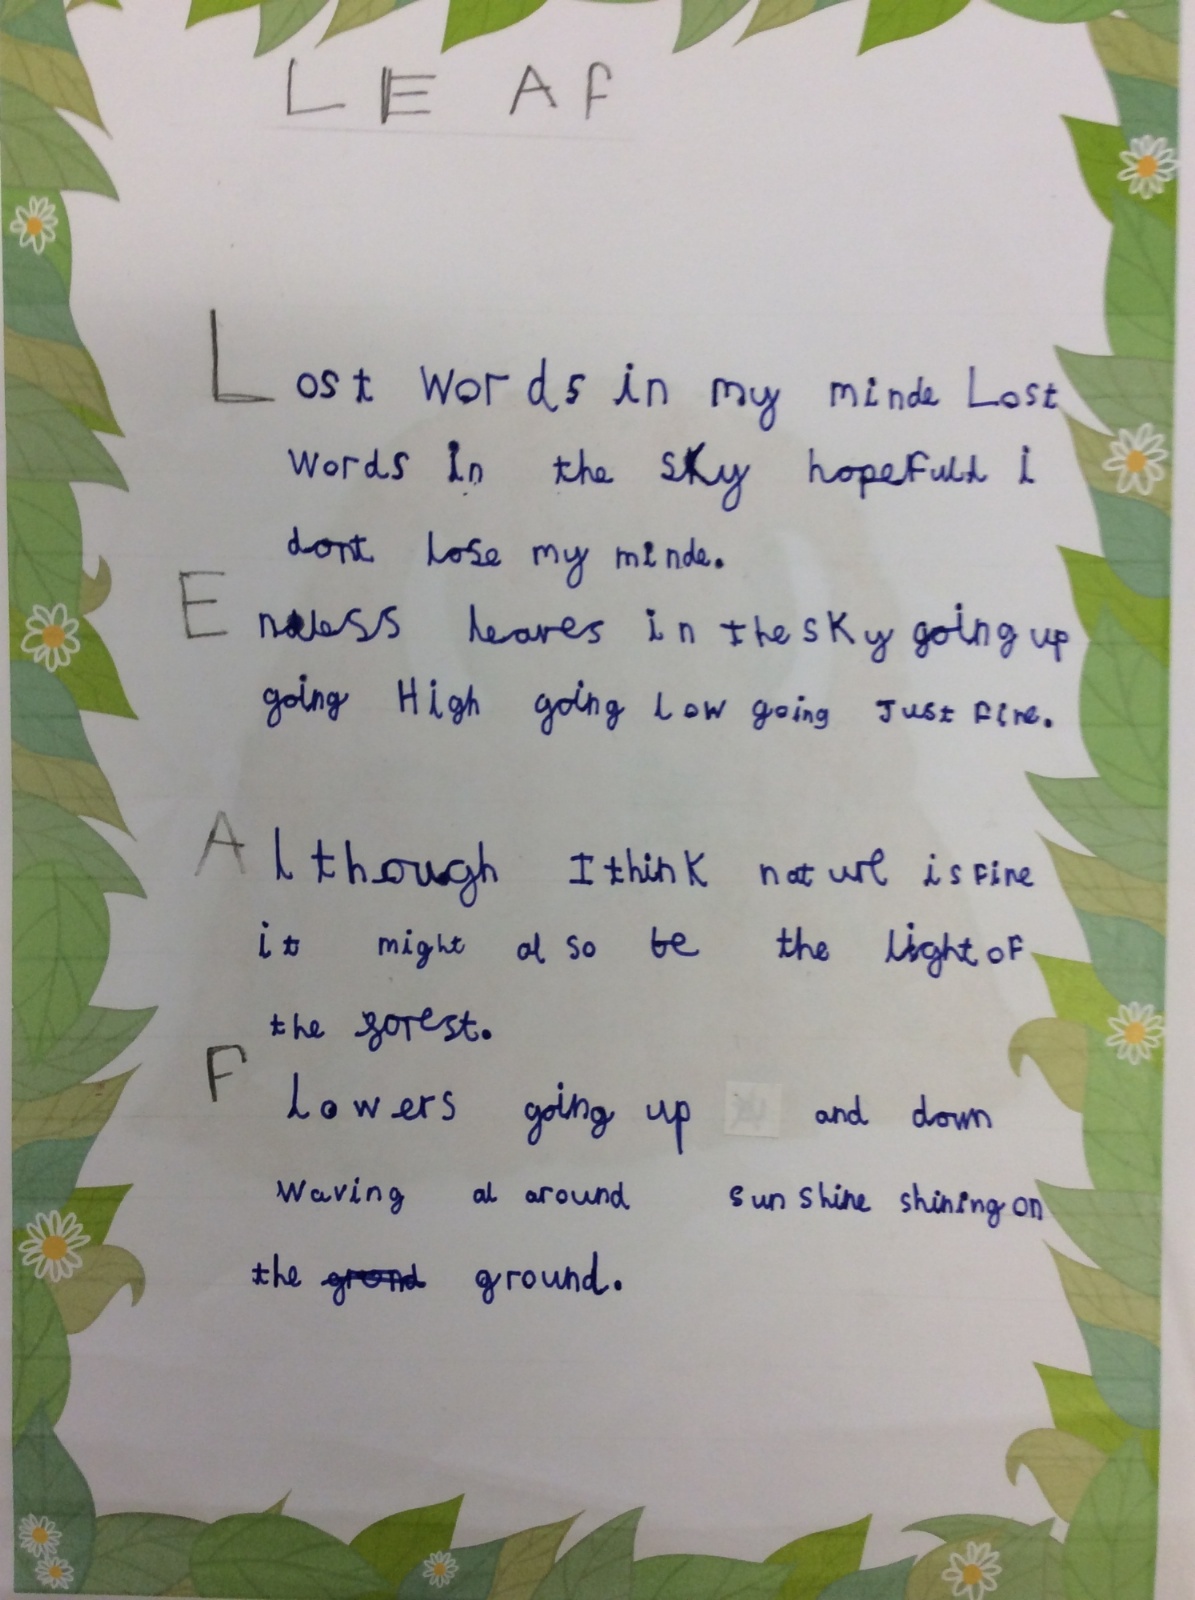 LEAF
Lost words in my minde Lost
words in the sky hopefull i
dont lose my minde.
Endless leaves in the sky going up
going High going low going Just fine.
Although I think nature is fine
it might also be the light of
the forest.
Flowers going up and down
waving al around sunshine shining on
the grond ground.